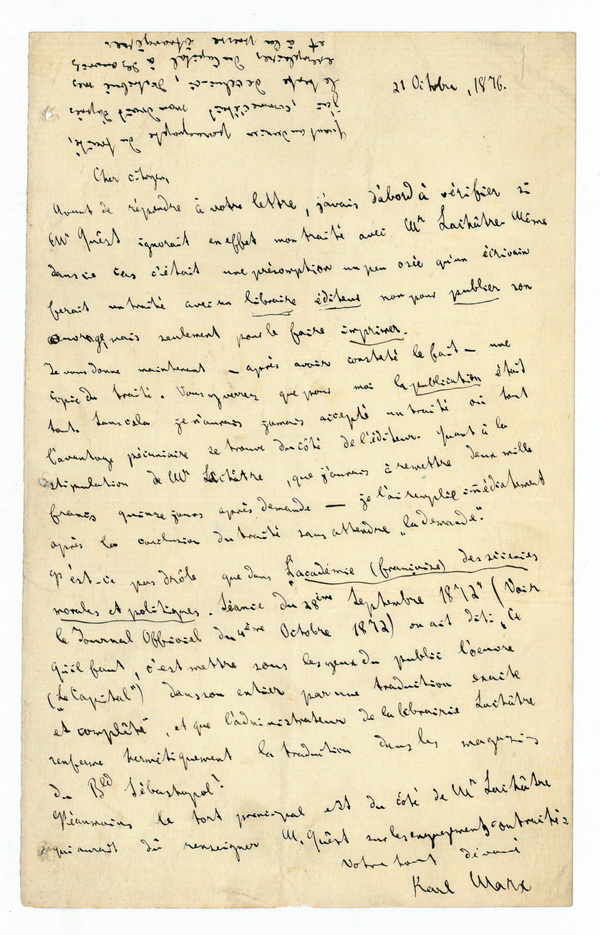 21 Octobre, 1876.
Cher citoyen,
Avant de répondre à votre lettre, j'avais d'abord à vérifier si
Mr Quêst ignorait en effet mon traité avec Mr Lachâtre. Même
dans ce cas c'était une présomption un peu osée qu'un écrivain
ferait un traité avec un libraire éditeur non pour publier son
ouvrage mais seulement pour le faire imprimer.
Je vous donne maintenant — après avoir constaté le fait — une
copie du traité. Vous y verrez que pour moi la publication était
tout. Sans cela je n'aurais jamais accepté un traité où tout
l'avantage pécuniaire se trouve du côté de l'éditeur. Quant à la
stipulation de Mr Lachâtre, que j'aurais à remettre deux mille
francs quinze jours après demande — je l'ai remplie immédiatement
après la conclusion du traité sans attendre „la demande".
N'est-ce pas drôle que dans L'académie (française) des sciences
morales et politiques. Séance du 28ème Septembre 1872" (Voir
le Journal Officiel du 4ème Octobre 1872) on ait dit: „Ce
qu'il faut, c'est mettre sous les yeux du public l'oeuvre
(„Le Capital") dans son entier par une traduction exacte
et complète", et que l'administrateur de la librairie Lachâtre
renferme hermétiquement la traduction dans les magazins
du Bld Sébastopol?
Néanmoins le tort principal est du côté de Mr Lachâtre
qui aurait dû renseigner M. Quêst sur les engagements contractés.
Votre tout dévoué
Karl Marx
Quant au dernier paragraphe du traité,
j'ai, comme c'était mon droit d'après
le texte de celui-ci, distribué mes
exemplaires du Capital à des
et à la presse étrangère.